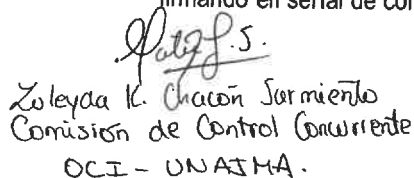 firmando en señal de con
Zuleyda K. Chacón Sarmiento
Comisión de Control Concurrente
OCI - UNAJMA.